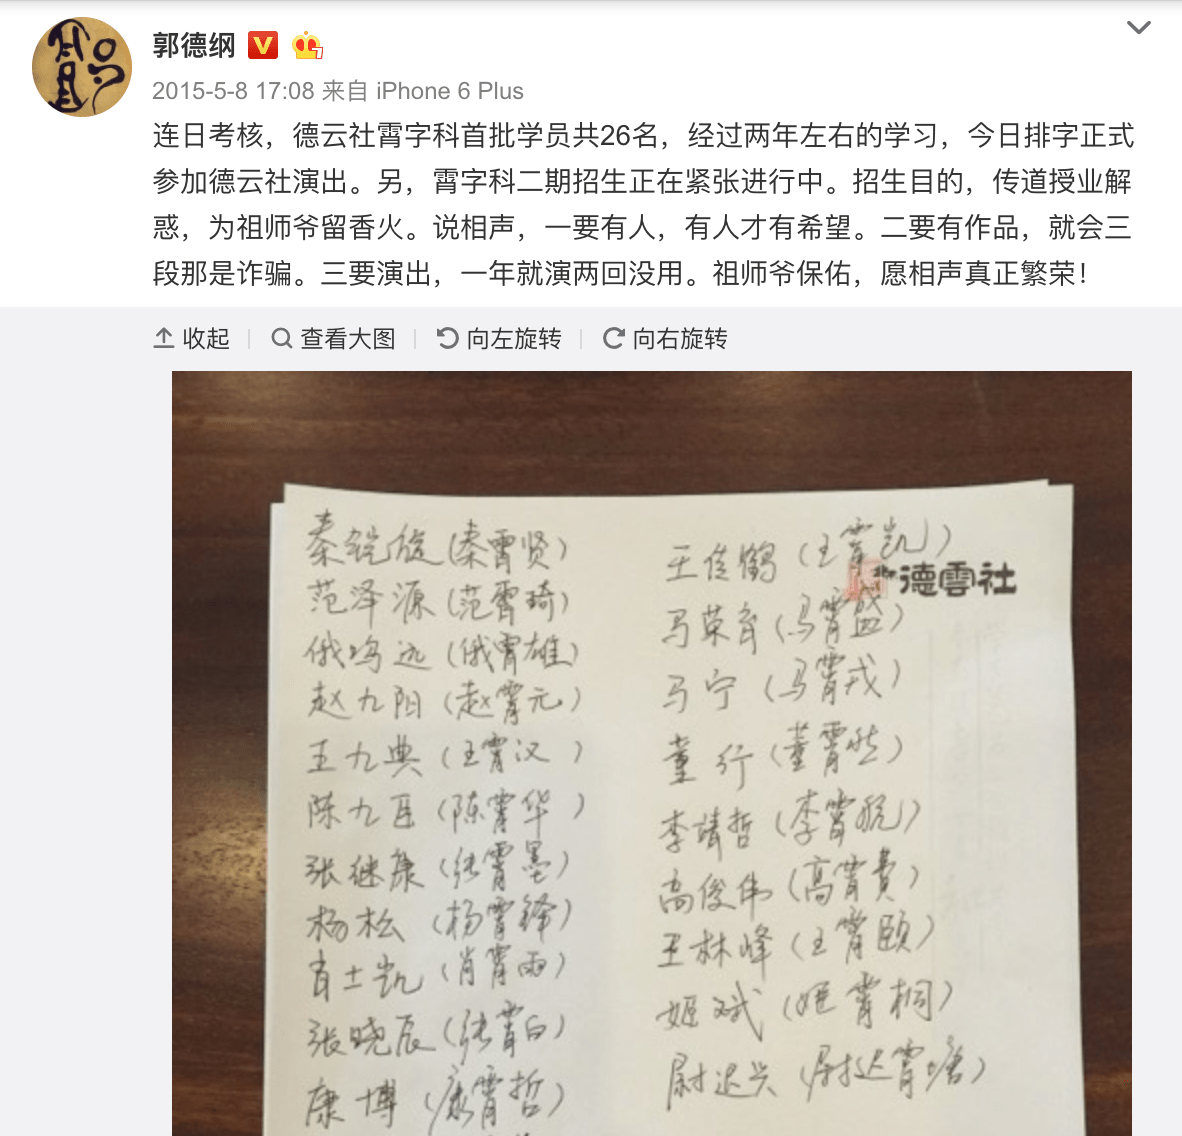 郭德纲
2015-5-8 17:08 来自 iPhone 6 Plus
连日考核，德云社霄字科首批学员共26名，经过两年左右的学习，今日排字正式
参加德云社演出。另，霄字科二期招生正在紧张进行中。招生目的，传道授业解
惑，为祖师爷留香火。说相声，一要有人，有人才有希望。二要有作品，就会三
段那是诈骗。三要演出，一年就演两回没用。祖师爷保佑，愿相声真正繁荣！
收起
查看大图
向左旋转
向右旋转
德雲社
秦凯旋（秦霄贤）
范泽源（范霄琦）
俄鸣远（俄霄雄）
赵九阳（赵霄元）
王九典（王霄汉）
陈九臣（陈霄华）
张继康（张霄墨）
杨松（杨霄锋）
肖士凯（肖霄雨）
张晓辰（张霄白）
康博（康霄哲）
王佳鹤（王霄凯）
马荣育（马霄盛）
马宁（马霄戎）
董行（董霄然）
李靖哲（李霄航）
高俊伟（高霄贵）
王林峰（王霄颐）
姬斌（姬霄桐）
尉迟兴（尉迟霄塘）